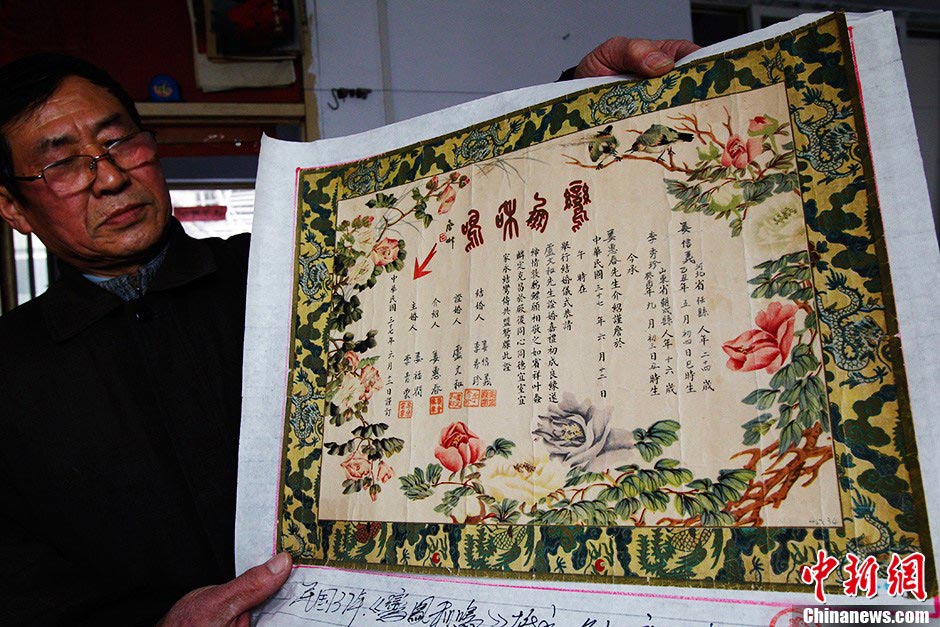 鸞鳳和鳴
姜信義 河北省 任縣 人年二十四歲
乙丑年五月初四日巳時生
李秀珍 山東省朝城縣人年十六歲
癸酉年九月初二日辰時生
今承
姜惠春先生介紹謹詹於
中華民國三十七年六月十二日
午時在
舉行結婚儀式恭請
盧文祉先生證婚嘉禮初成良緣遂
締情敦鶼鰈願相敬之如賓祥叶螽
麟定克昌於厥後同心同德宜室宜
家永結鸞儔共盟鴛蝶此證
結婚人 姜信義 李秀珍
證婚人 盧文祉
介紹人 姜惠春
主婚人 姜福潤 李青雲
中華民國三十七年六月十二日謹訂
民国37年《鸾凤和鸣》
中新网
Chinanews.com